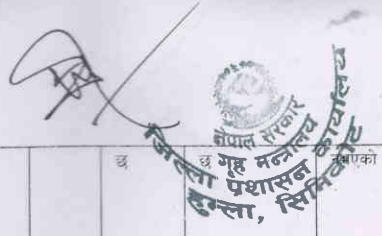 नेपाल सरकार
गृह मन्त्रालय
जिल्ला प्रशासन कार्यालय
हुम्ला, सिमिकोट
छ
छ